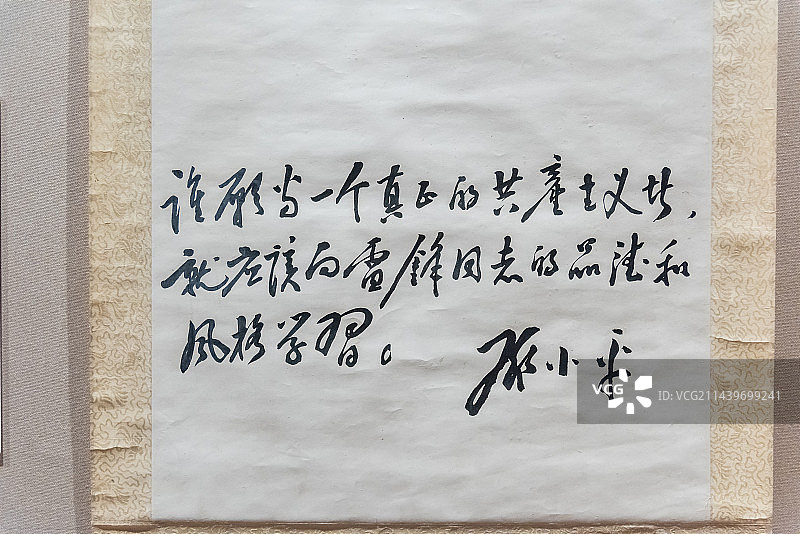 谁愿当一个真正的共產主义者，
就应该向雷鋒同志的品德和
风格学習。 邓小平
VCG
VCG211439699241